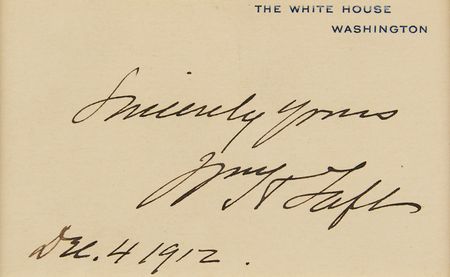 THE WHITE HOUSE
WASHINGTON
Sincerely yours
Wm H Taft
Dec. 4 1912.